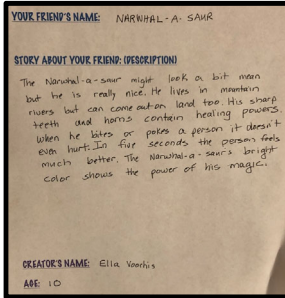 YOUR FRIEND'S NAME: NARWHAL-A-SAUR
STORY ABOUT YOUR FRIEND: (DESCRIPTION)
The Narwhal-a-saur might look a bit mean
but he is really nice. He lives in mountain
rivers but can come out on land too. His sharp
teeth and horns contain healing powers.
When he bites or pokes a person it doesn't
even hurt. In five seconds the person feels
much better. The Narwhal-a-saur's bright
color shows the power of his magic.
CREATOR'S NAME: Ella Voorhis
AGE: 10